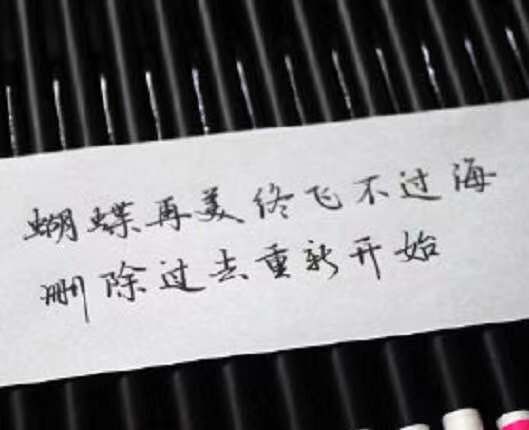 蝴蝶再美终飞不过海
删除过去重新开始